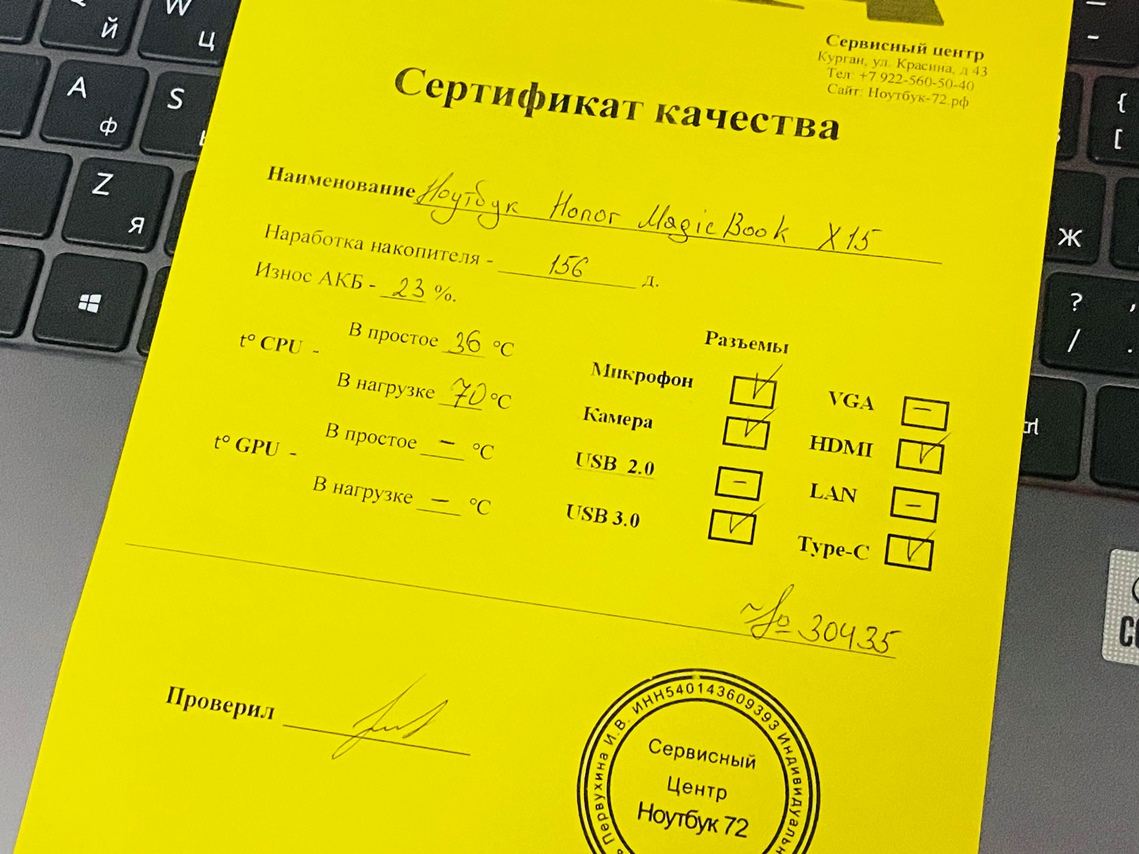 Сервисный центр
Курган, ул. Красина, д 43
Тел: +7 922-560-50-40
Сайт: Ноутбук-72.рф
Сертификат качества
Наименование Ноутбук Honor MagicBook X15
Наработка накопителя - 156 д.
Износ АКБ - 23 %.
t° CPU - В простое 36 °C
В нагрузке 70 °C
t° GPU - В простое — °C
В нагрузке — °C
Разъемы
Микрофон VGA —
Камера HDMI
USB 2.0 — LAN —
USB 3.0 Type-C
№ 30435
Проверил
Первухина И.В. ИНН540143609393 Индивидуальн
Сервисный
Центр
Ноутбук 72
Й
W
Ц
A
Ф
S
Z
Я
Ж
{
[
?
/